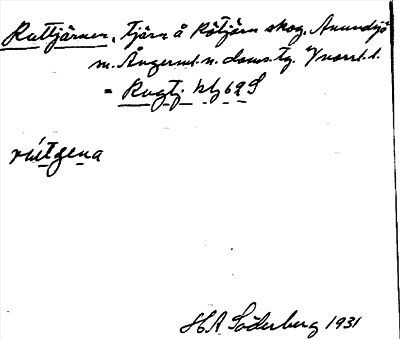 Ruttjärnen, Tjärn å Rötjärn skog. Anundsjö
m. Ångerml. n. doms. tg. Vnorrl. l.
= Rugtj. bl 69 S
rúetgena
H A Söderberg 1931